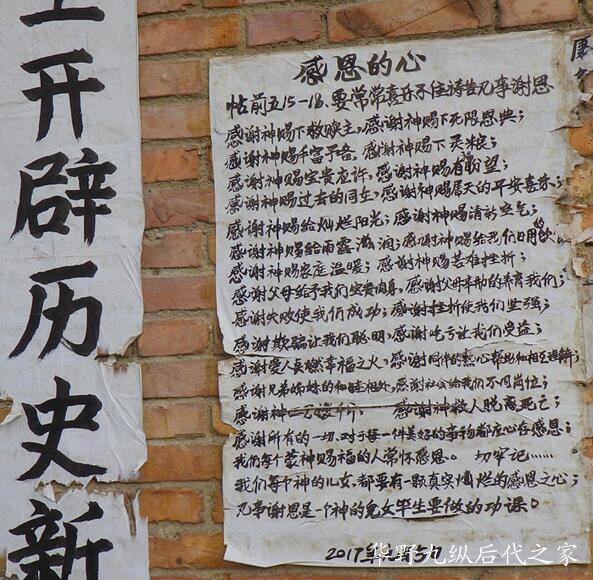 主开辟历史新
感恩的心
帖前五15-18.要常常喜乐不住祷告凡事谢恩
感谢神赐下救赎主,感谢神赐下无限恩典;
感谢神赐丰富予各,感谢神赐下灵粮;
感谢神赐宝贵应许,感谢神赐有盼望;
感谢神赐过去的同在,感谢神赐属天的平安喜乐;
感谢神赐给灿烂阳光;感谢神赐清新空气;
感谢神赐给雨露滋润;感谢神赐给我们日用饮
感谢神赐家庭温暖;感谢神赐苦难挫折;
感谢父母给予我们宝贵肉身,感谢父母辛勤的养育我们;
感谢失败使我们成功;感谢挫折使我们坚强;
感谢欺骗让我们聪明,感谢吃亏让我们受益;
感谢爱人点燃幸福之火,感谢同伴的热心帮助和相互理解;
感谢兄弟姊妹的和睦相处,感谢社会给我们不同岗位;
感谢神 感谢神救人脱离死亡;
感谢所有的一切.对于每一件美好的事物都应心存感恩;
我们每个蒙神赐福的人常怀感恩。 切牢记……
我们每个神的儿女.都要有一颗真实灿烂的感恩之心;
凡事谢恩是一个神的儿女毕生要做的功课。
2017年
华野九纵后代之家